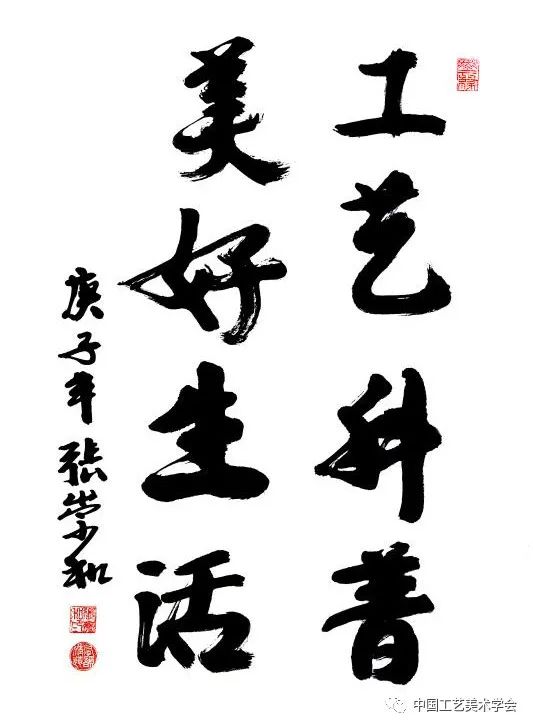 工艺科普
美好生活
庚子年 张崇和
中国工艺美术学会